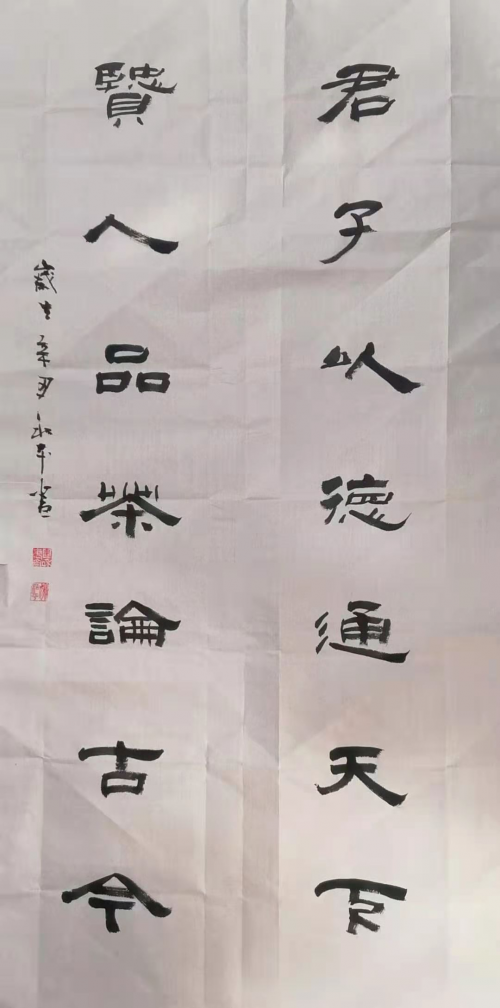 君子以德通天下
賢人品茶論古今
歲在辛丑永平書